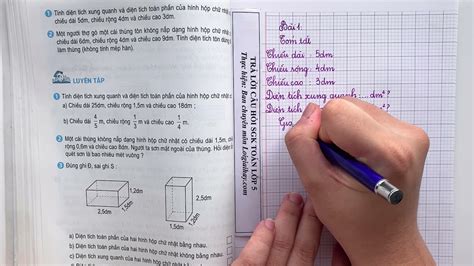 1 Tính diện tích xung quanh và diện tích toàn phần của hình hộp chữ nhật c
chiều dài 5dm, chiều rộng 4dm và chiều cao 3dm.
2 Một người thợ gò một cái thùng tôn không nắp dạng hình hộp chữ nhật c
chiều dài 6dm, chiều rộng 4dm và chiều cao 9dm. Tính diện tích tôn dùng đ
làm thùng (không tính mép hàn).
LUYỆN TẬP
1 Tính diện tích xung quanh và diện tích toàn phần của hình hộp chữ nhật c
a) Chiều dài 25dm, chiều rộng 1,5m và chiều cao 18dm ;
b) Chiều dài 4/5 m, chiều rộng 1/3 m và chiều cao 1/4 m.
2 Một cái thùng không nắp dạng hình hộp chữ nhật có chiều dài 1,5m, ch
rộng 0,6m và chiều cao 8dm. Người ta sơn mặt ngoài của thùng. Hỏi diện t
quét sơn là bao nhiêu mét vuông ?
3 Đúng ghi Đ, sai ghi S :
1,2dm
2,5dm
1,5dm
2,5dm
1,5dm
1,2dm
a) Diện tích toàn phần của hai hình hộp chữ nhật bằng nhau.
b) Diện tích toàn phần của hai hình hộp chữ nhật không bằng nhau.
c) Diện tích xung quanh của hai hình hộp chữ nhật bằng nhau.
TRẢ LỜI CÂU HỎI SGK TOÁN LỚP 5
Thực hiện: Ban chuyên môn Loigiaihay.com
Bài 1
Tóm tắt
Chiều dài : 5dm
Chiều rộng : 4dm
Chiều cao : 3dm
Diện tích xung quanh : ... dm² ?
Diện tích dm² ?
Giả